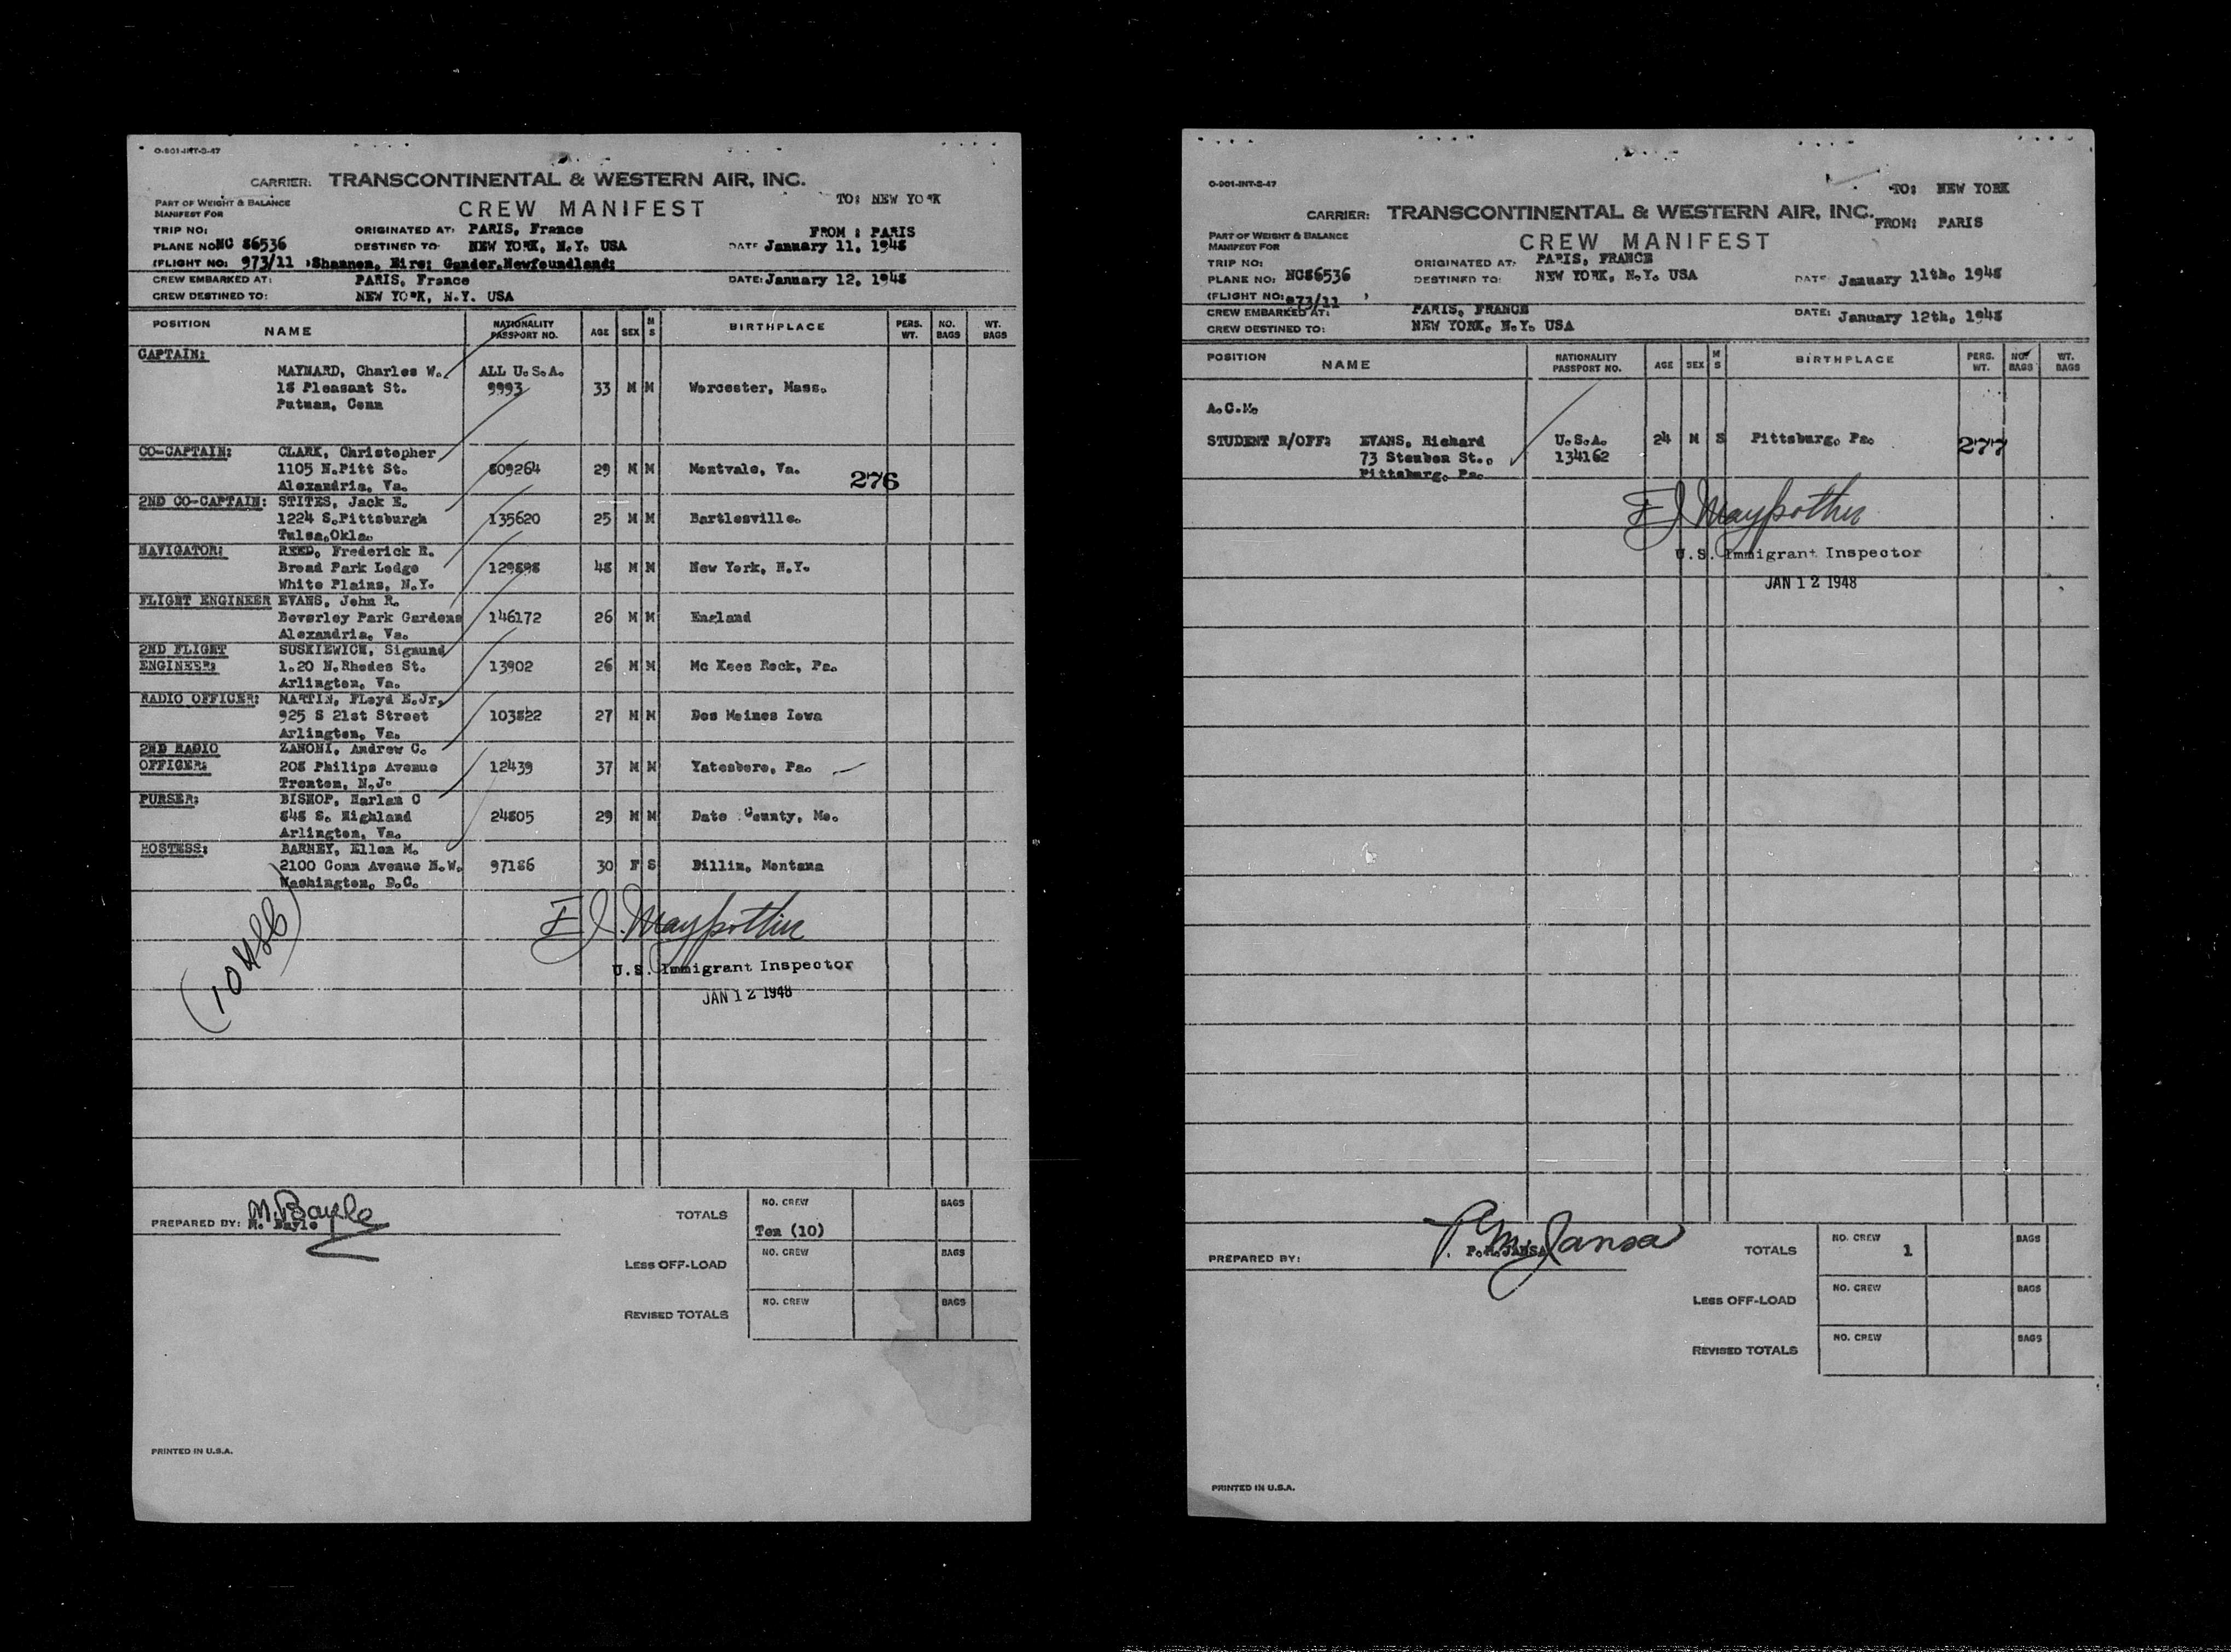 O-901-INT-S-47
CARRIER: TRANSCONTINENTAL & WESTERN AIR, INC.
TO: NEW YO K
PART OF WEIGHT & BALANCE
MANIFEST FOR
CREW MANIFEST
TRIP NO:
ORIGINATED AT: PARIS, France
FROM : PARIS
PLANE NO: NC 86536
DESTINED TO: NEW YORK, N.Y. USA
DATE January 11, 1948
(FLIGHT NO: 973/11 ) Shannon, Eire; Gander, Newfoundland;
CREW EMBARKED AT: PARIS, France
DATE: January 12, 1948
CREW DESTINED TO: NEW YO K, N.Y. USA
POSITION NAME NATIONALITY PASSPORT NO. AGE SEX M S BIRTHPLACE PERS. WT. NO. BAGS WT. BAGS
CAPTAIN:
MAYNARD, Charles W. ALL U.S.A.
18 Pleasant St. 9993 33 M M Worcester, Mass.
Putnam, Conn
CO-CAPTAIN: CLARK, Christopher
1105 N.Pitt St. 809264 29 M M Montvale, Va. 276
Alexandria, Va.
2ND CO-CAPTAIN: STITES, Jack E.
1224 S.Pittsburgh 135620 25 M M Bartlesville.
Tulsa,Okla.
NAVIGATOR: REED, Frederick R.
Broad Park Lodge 129898 48 M M New York, N.Y.
White Plains, N.Y.
FLIGHT ENGINEER EVANS, John R.
Beverley Park Gardens 146172 26 M M England
Alexandria, Va.
2ND FLIGHT SUSKIEWICH, Sigmund
ENGINEER: 1.20 N.Rhodes St. 13902 26 M M Mc Kees Rock, Pa.
Arlington, Va.
RADIO OFFICER: MARTIN, FLoyd E.Jr.
925 S 21st Street 103822 27 M M Des Moines Iowa
Arlington, Va.
2ND RADIO ZANONI, Andrew C.
OFFICER: 208 Philips Avenue 12439 37 M M Yatesboro, Pa.
Trenton, N.J.
PURSER: BISHOP, Harlan C
848 S. Highland 24805 29 M M Date County, Mo.
Arlington, Va.
HOSTESS: BARNEY, Ellen M.
2100 Conn Avenue N.W. 97186 30 F S Billin, Montana
Washington, D.C.
(10 USC)
E J Maypother
U.S. Immigrant Inspector
JAN 12 1948
M. Bayle
PREPARED BY: M. Bayle
TOTALS NO. CREW BAGS
Ten (10)
LESS OFF-LOAD NO. CREW BAGS
REVISED TOTALS NO. CREW BAGS
PRINTED IN U.S.A.
O-901-INT-S-47
TO: NEW YORK
CARRIER: TRANSCONTINENTAL & WESTERN AIR, INC.
FROM: PARIS
PART OF WEIGHT & BALANCE
MANIFEST FOR
CREW MANIFEST
TRIP NO:
ORIGINATED AT: PARIS, FRANCE
PLANE NO: NC86536
DESTINED TO: NEW YORK, N.Y. USA
DATE January 11th, 1948
(FLIGHT NO: 973/11 )
CREW EMBARKED AT: PARIS, FRANCE
DATE: January 12th, 1948
CREW DESTINED TO: NEW YORK, N.Y. USA
POSITION NAME NATIONALITY PASSPORT NO. AGE SEX M S BIRTHPLACE PERS. WT. NO. BAGS WT. BAGS
A.C.M.
STUDENT R/OFF: EVANS, Richard U.S.A. 24 M S Pittsburg, Pa. 277
73 Steuben St., 134162
Pittsburg, Pa.
E J Maypother
U.S. Immigrant Inspector
JAN 12 1948
P.M. Jansa
PREPARED BY: P.M. JANSA
TOTALS NO. CREW 1 BAGS
LESS OFF-LOAD NO. CREW BAGS
REVISED TOTALS NO. CREW BAGS
PRINTED IN U.S.A.